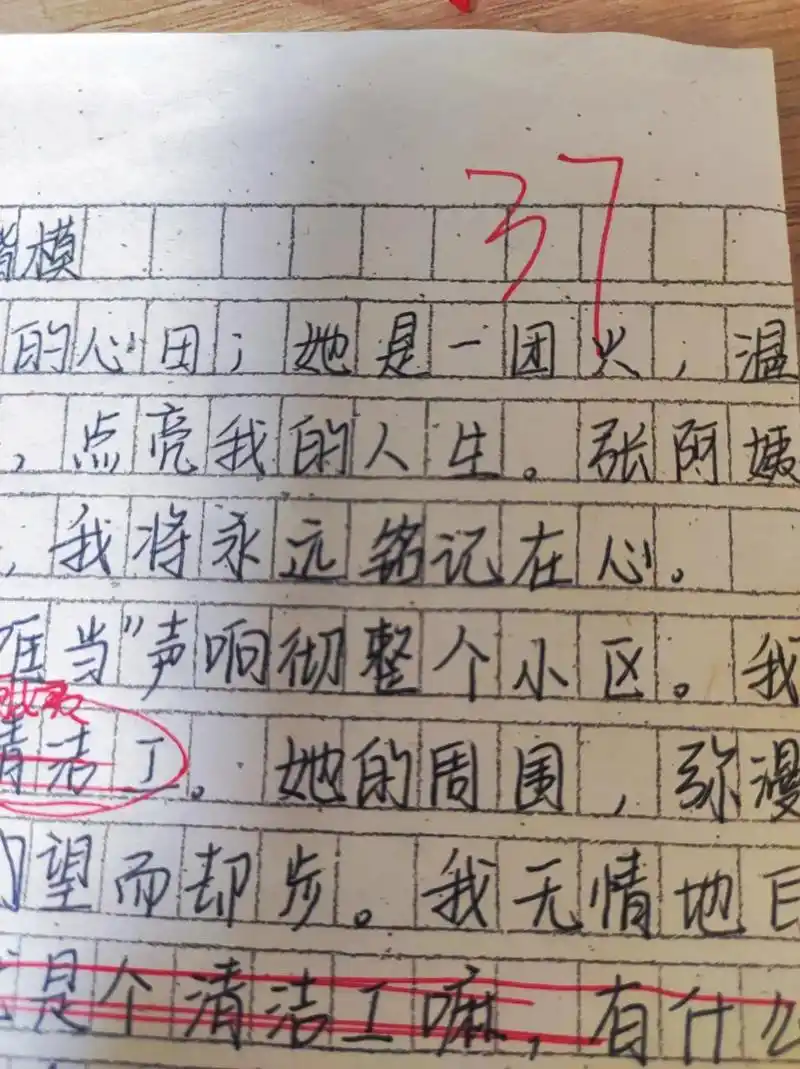 37
楷模
的心田；她是一团火，温
，点亮我的人生。张阿姨
，我将永远铭记在心。
当"声响彻整个小区。我
清洁工。她的周围，弥漫
望而却步。我无情地
是个清洁工嘛，有什么